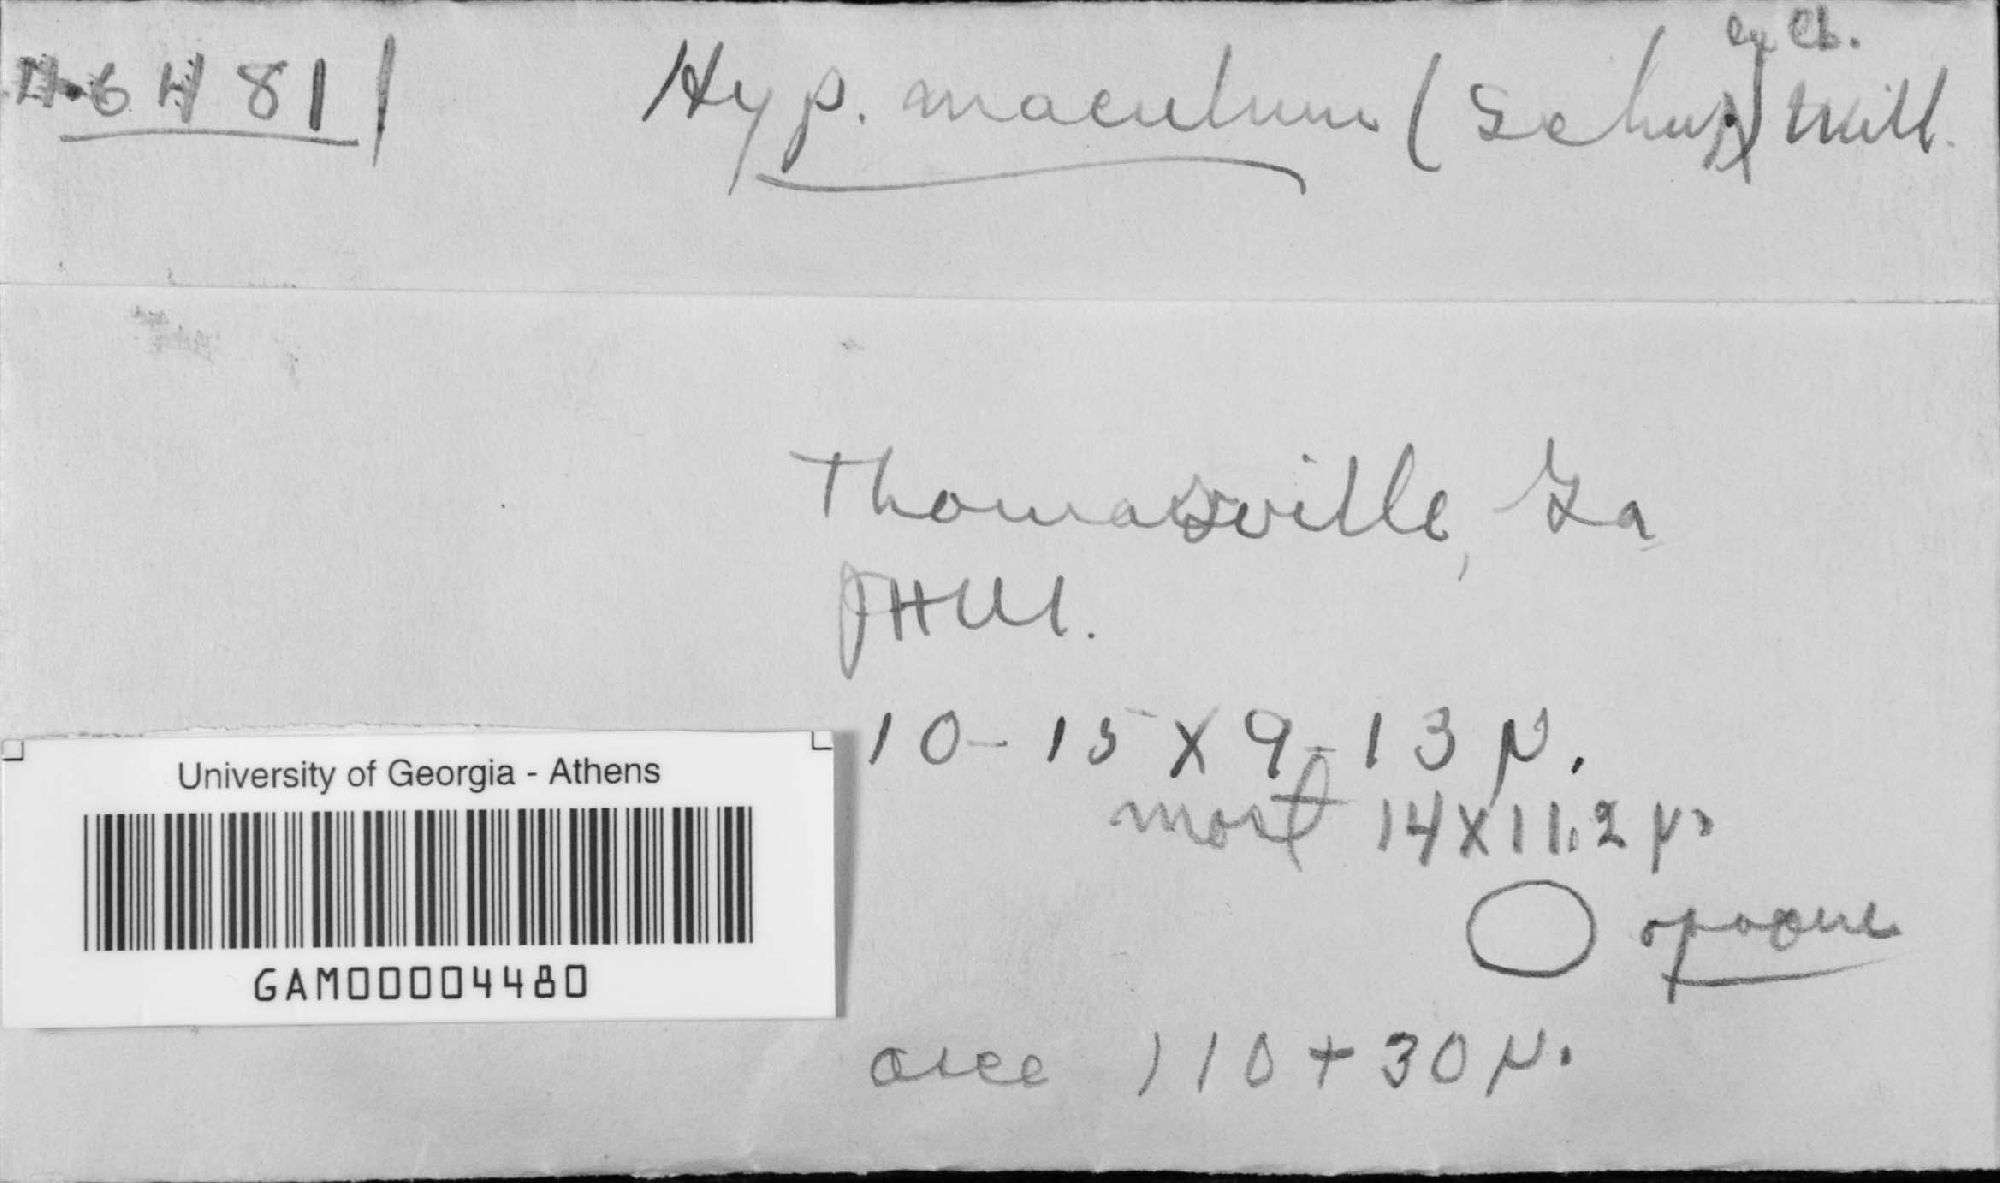 6481
Hyp. maculum (Schw.) Mill.
ex Cb.
Thomasville, Ga
JHM.
10-15 x 9-13 μ.
most 14 x 11.2 μ.
opaque
asce 110 + 30 μ.
University of Georgia - Athens
GAM00004480